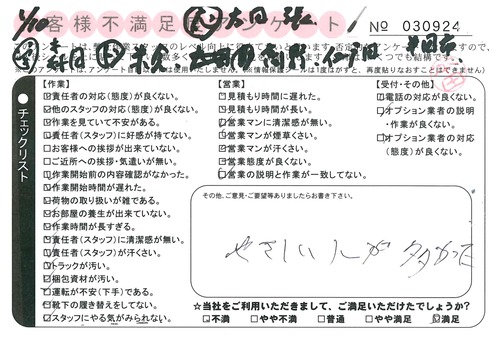 お客様不満足度アンケート
No 030924
1/10
チェックリスト
【作業】
責任者の対応(態度)が良くない。
他のスタッフの対応(態度)が良くない。
作業を見ていて不安がある。
責任者(スタッフ)に好感が持てない。
お客様への挨拶が出来ていない。
ご近所への挨拶・気遣いが無い。
作業開始前の内容確認がなかった。
作業開始時間が遅れた。
荷物の取り扱いが雑である。
お部屋の養生が出来ていない。
作業時間が長すぎる。
責任者(スタッフ)に清潔感が無い。
責任者(スタッフ)が汗くさい。
トラックが汚い。
梱包資材が汚い。
運転が不安(下手)である。
靴下の履き替えをしてない。
スタッフにやる気がみられない。
【営業】
見積もり時間に遅れた。
見積もり時間が長い。
営業マンに清潔感が無い。
営業マンが煙草くさい。
営業マンが汗くさい。
営業態度が良くない。
営業の説明と作業が一致してない。
【受付・その他】
電話の対応が良くない。
オプション業者の説明
・作業が良くない。
オプション業者の対応
(態度)が良くない。
その他、ご意見・ご要望等ありましたらお書き下さい。
やさしい人が多かった
☆当社をご利用いただきまして、ご満足いただけたでしょうか?
不満 やや不満 普通 やや満足 満足